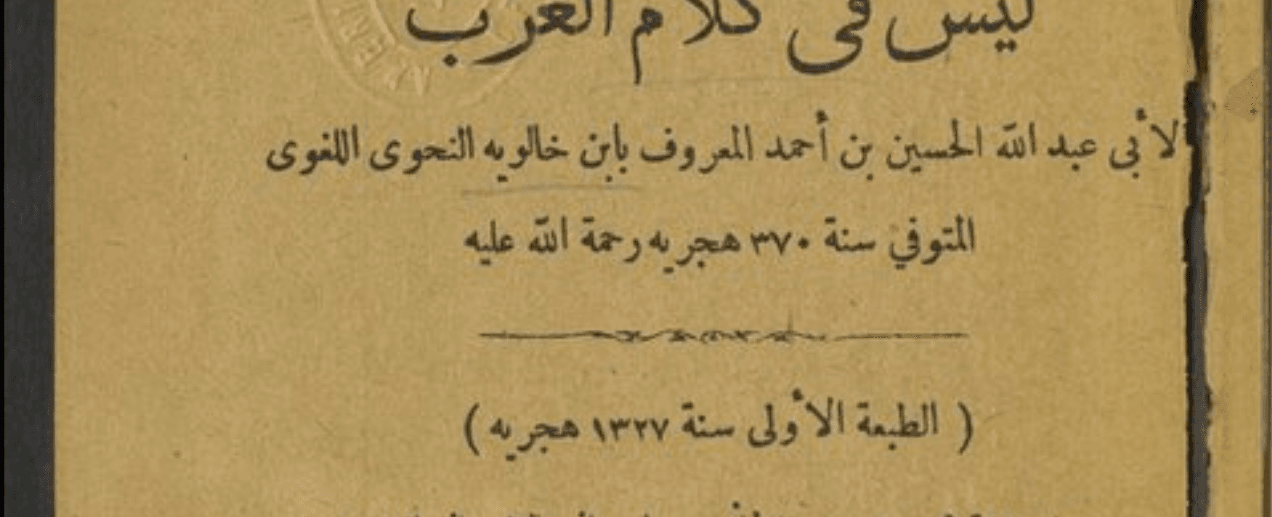 ليس في كلام العرب
لأبي عبد الله الحسين بن أحمد المعروف بابن خالويه النحوى اللغوى
المتوفي سنة ٣٧٠ هجريه رحمة الله عليه
( الطبعة الأولى سنة ١٣٢٧ هجريه )